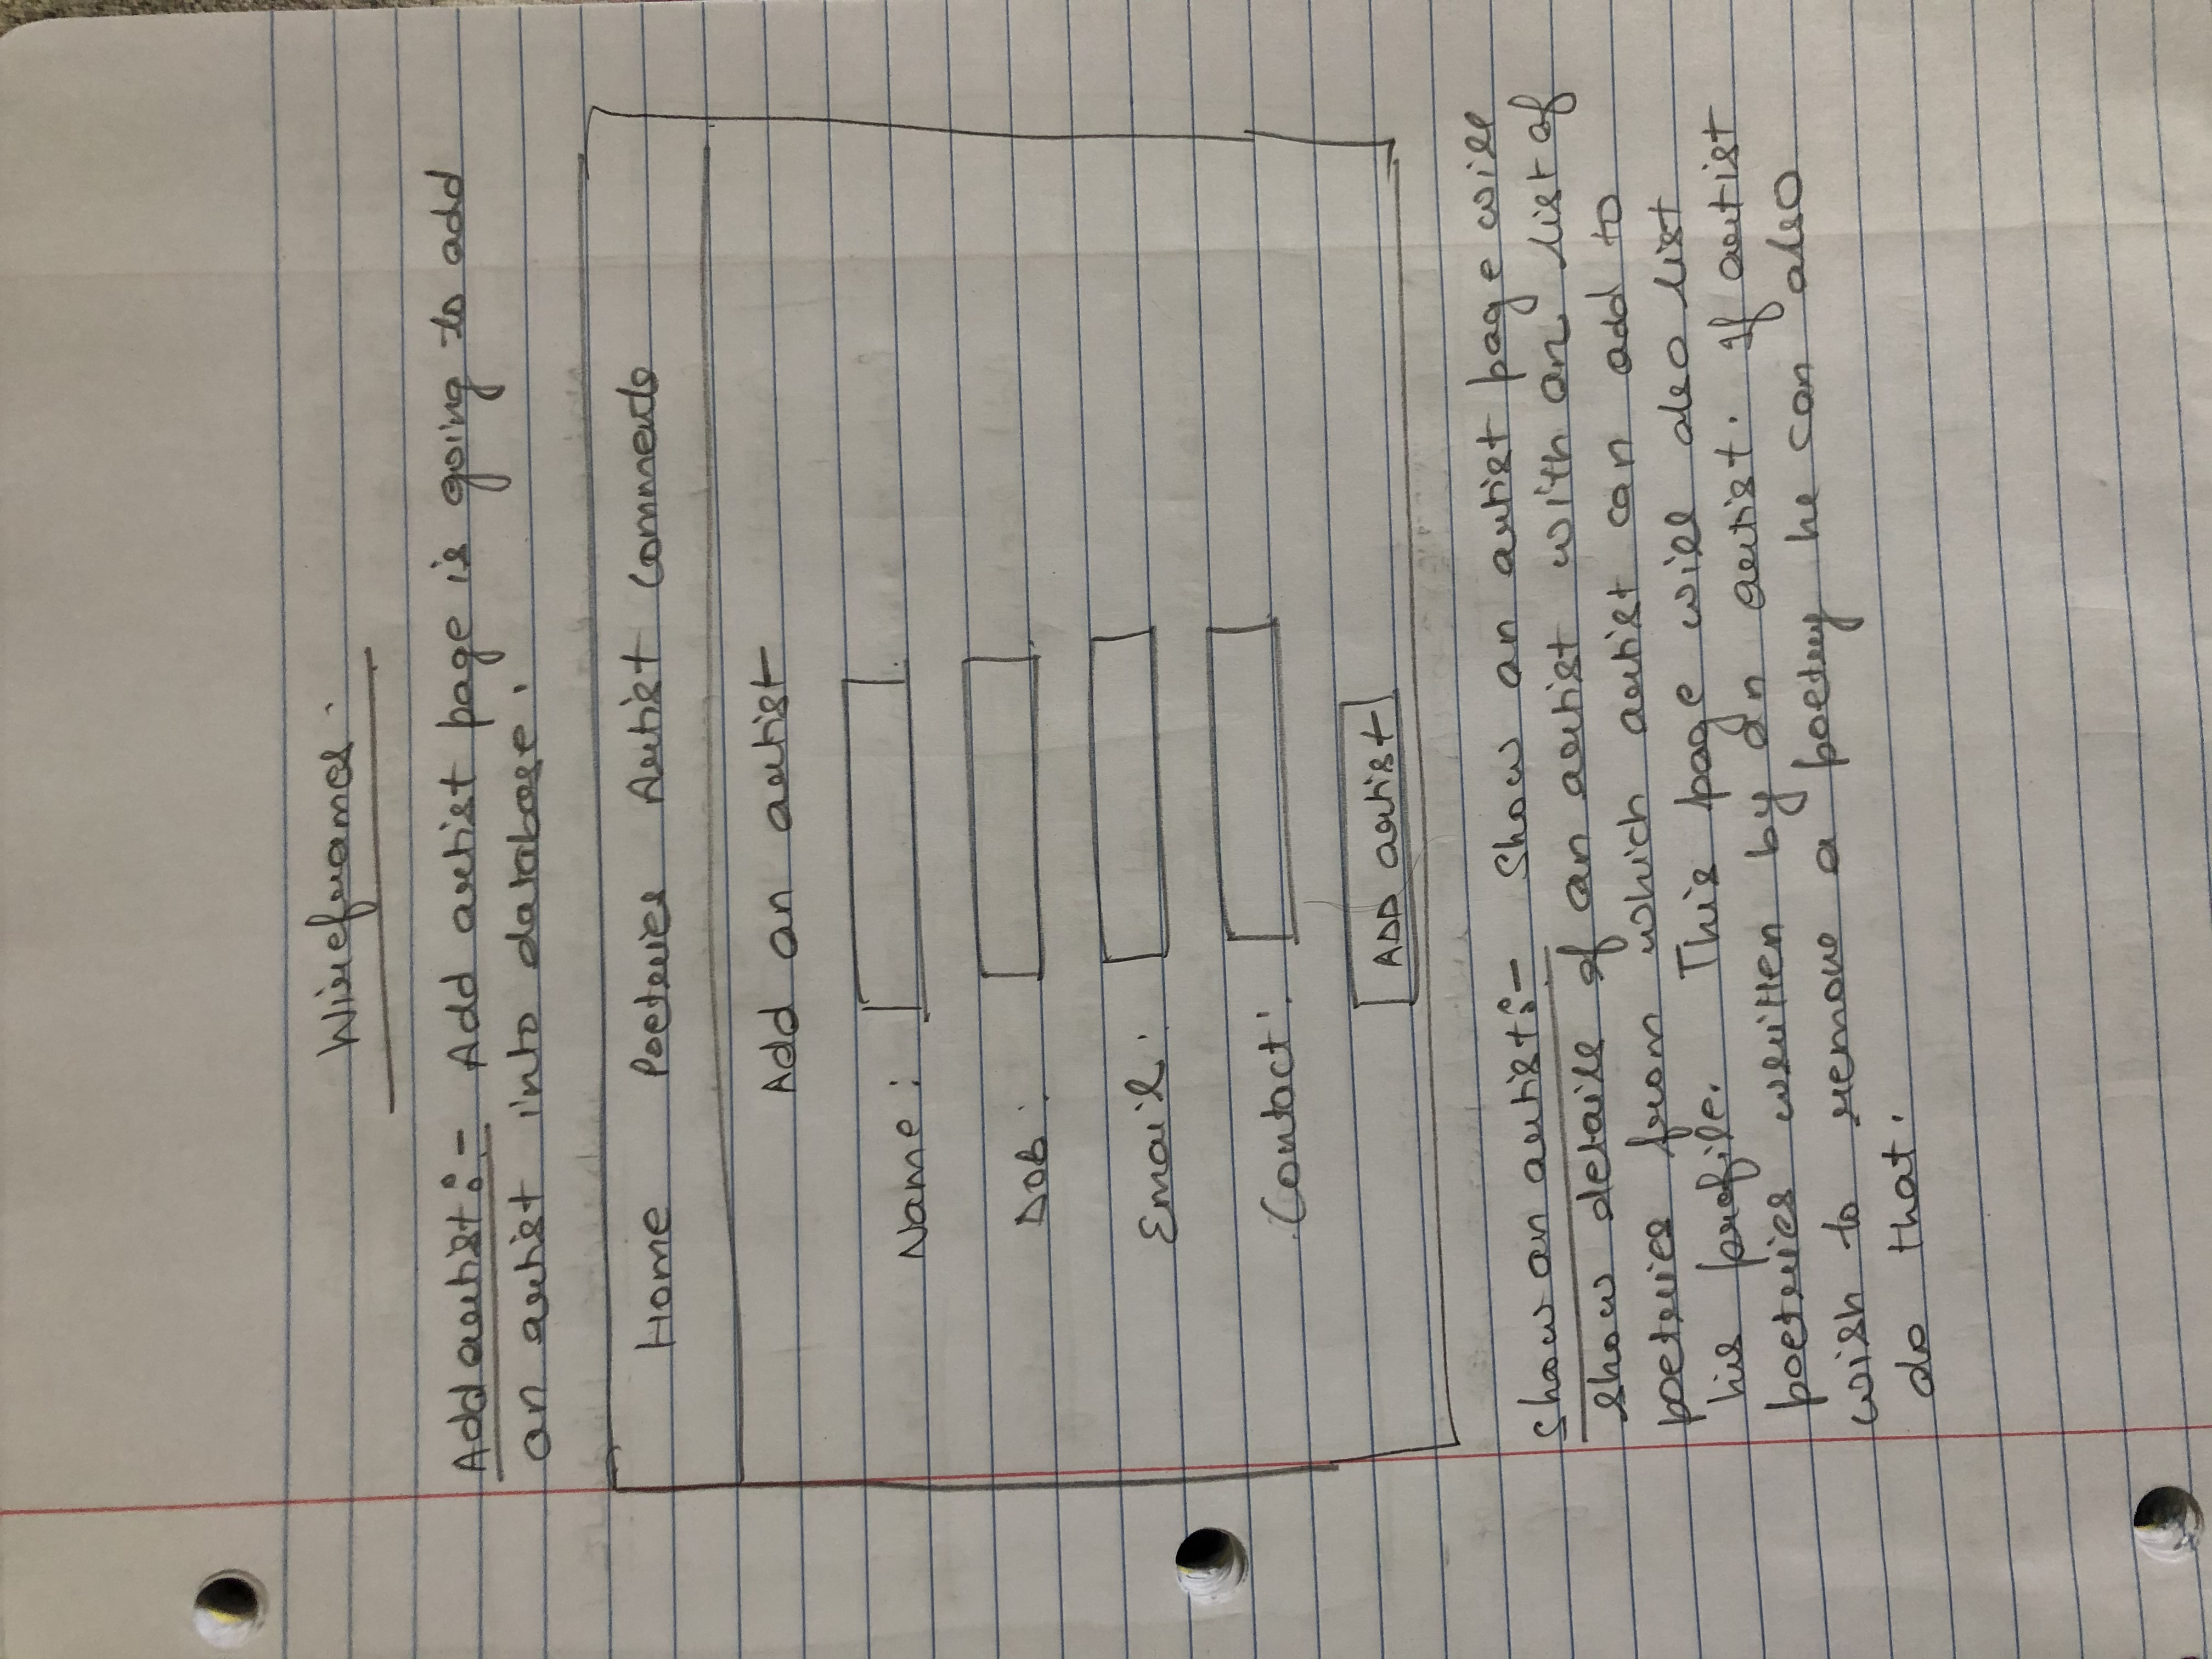 Wireframes.
Add artist:- Add artist page is going to add
an artist into database.
Home Poeteries Artist Comments
Add an artist
Name:
DOB:
Email:
Contact:
ADD artist
Show an artist:- Show an artist page will
show details of an artist with an list of
poeteries from which artist can add to
his profile. This page will also list
poeteries written by an artist. If artist
wish to remove a poetry he can also
do that.